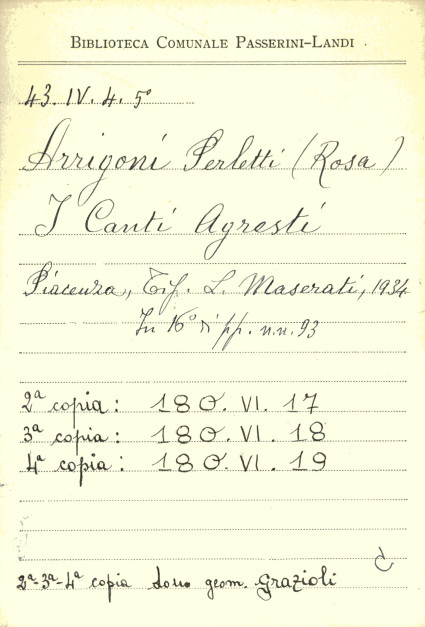 BIBLIOTECA COMUNALE PASSERINI-LANDI
43. IV. 4. 5°
Arrigoni Perletti (Rosa)
I Canti Agresti
Piacenza, Tip. L. Maserati, 1934
In 16° di pp. n.n. 93
2ª copia: 180. VI. 17
3ª copia: 180. VI. 18
4ª copia: 180. VI. 19
2ª-3ª-4ª copia dono geom. Grazioli